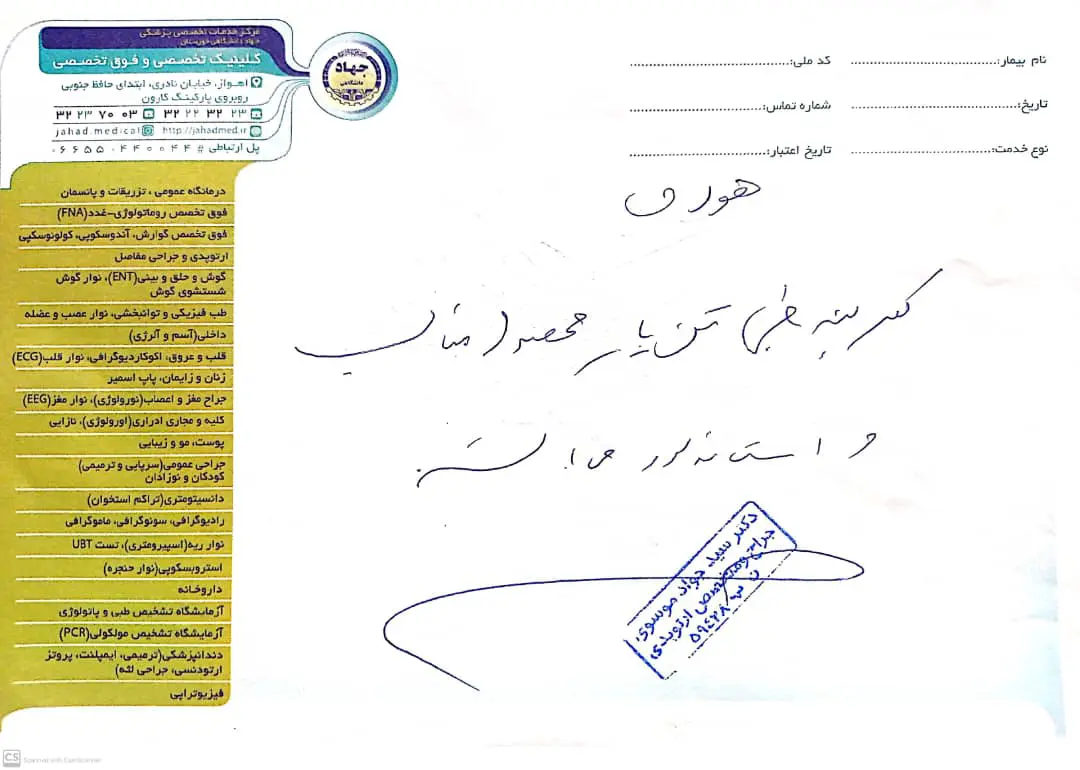 مرکز خدمات تخصصی پزشکی
جهاد دانشگاهی خوزستان
کلینیک تخصصی و فوق تخصصی
اهواز، خیابان نادری، ابتدای حافظ جنوبی
روبروی پارکینگ کارون
۳۲ ۲۳ ۷۰ ۰۳ ۳۲ ۲۲ ۳۲ ۲۳
jahad.medical http://jahadmed.ir
پل ارتباطی # ۰۶۶۵۵۰۴۴۰۰۴۴
جهاد
دانشگاهی
نام بیمار: کد ملی:
تاریخ: شماره تماس:
نوع خدمت: تاریخ اعتبار:
درمانگاه عمومی ، تزریقات و پانسمان
فوق تخصص روماتولوژی-غدد(FNA)
فوق تخصص گوارش، آندوسکوپی، کولونوسکپی
ارتوپدی و جراحی مفاصل
گوش و حلق و بینی(ENT)، نوار گوش
شستشوی گوش
طب فیزیکی و توانبخشی، نوار عصب و عضله
داخلی(آسم و آلرژی)
قلب و عروق، اکوکاردیوگرافی، نوار قلب(ECG)
زنان و زایمان، پاپ اسمیر
جراح مغز و اعصاب(نورولوژی)، نوار مغز(EEG)
کلیه و مجاری ادراری(اورولوژی)، نازایی
پوست، مو و زیبایی
جراحی عمومی(سرپایی و ترمیمی)
کودکان و نوزادان
دانسیتومتری(تراکم استخوان)
رادیوگرافی، سونوگرافی، ماموگرافی
نوار ریه(اسپیرومتری)، تست UBT
استروبسکوپی(نوار حنجره)
داروخانه
آزمایشگاه تشخیص طبی و پاتولوژی
آزمایشگاه تشخیص مولکولی(PCR)
دندانپزشکی(ترمیمی، ایمپلنت، پروتز
ارتودنسی، جراحی لثه)
فیزیوتراپی
کفی طبی محصول مناسب
و استاندارد می باشد.
دکتر سید جواد موسوی
جراح و متخصص ارتوپدی
CS Scanned with CamScanner